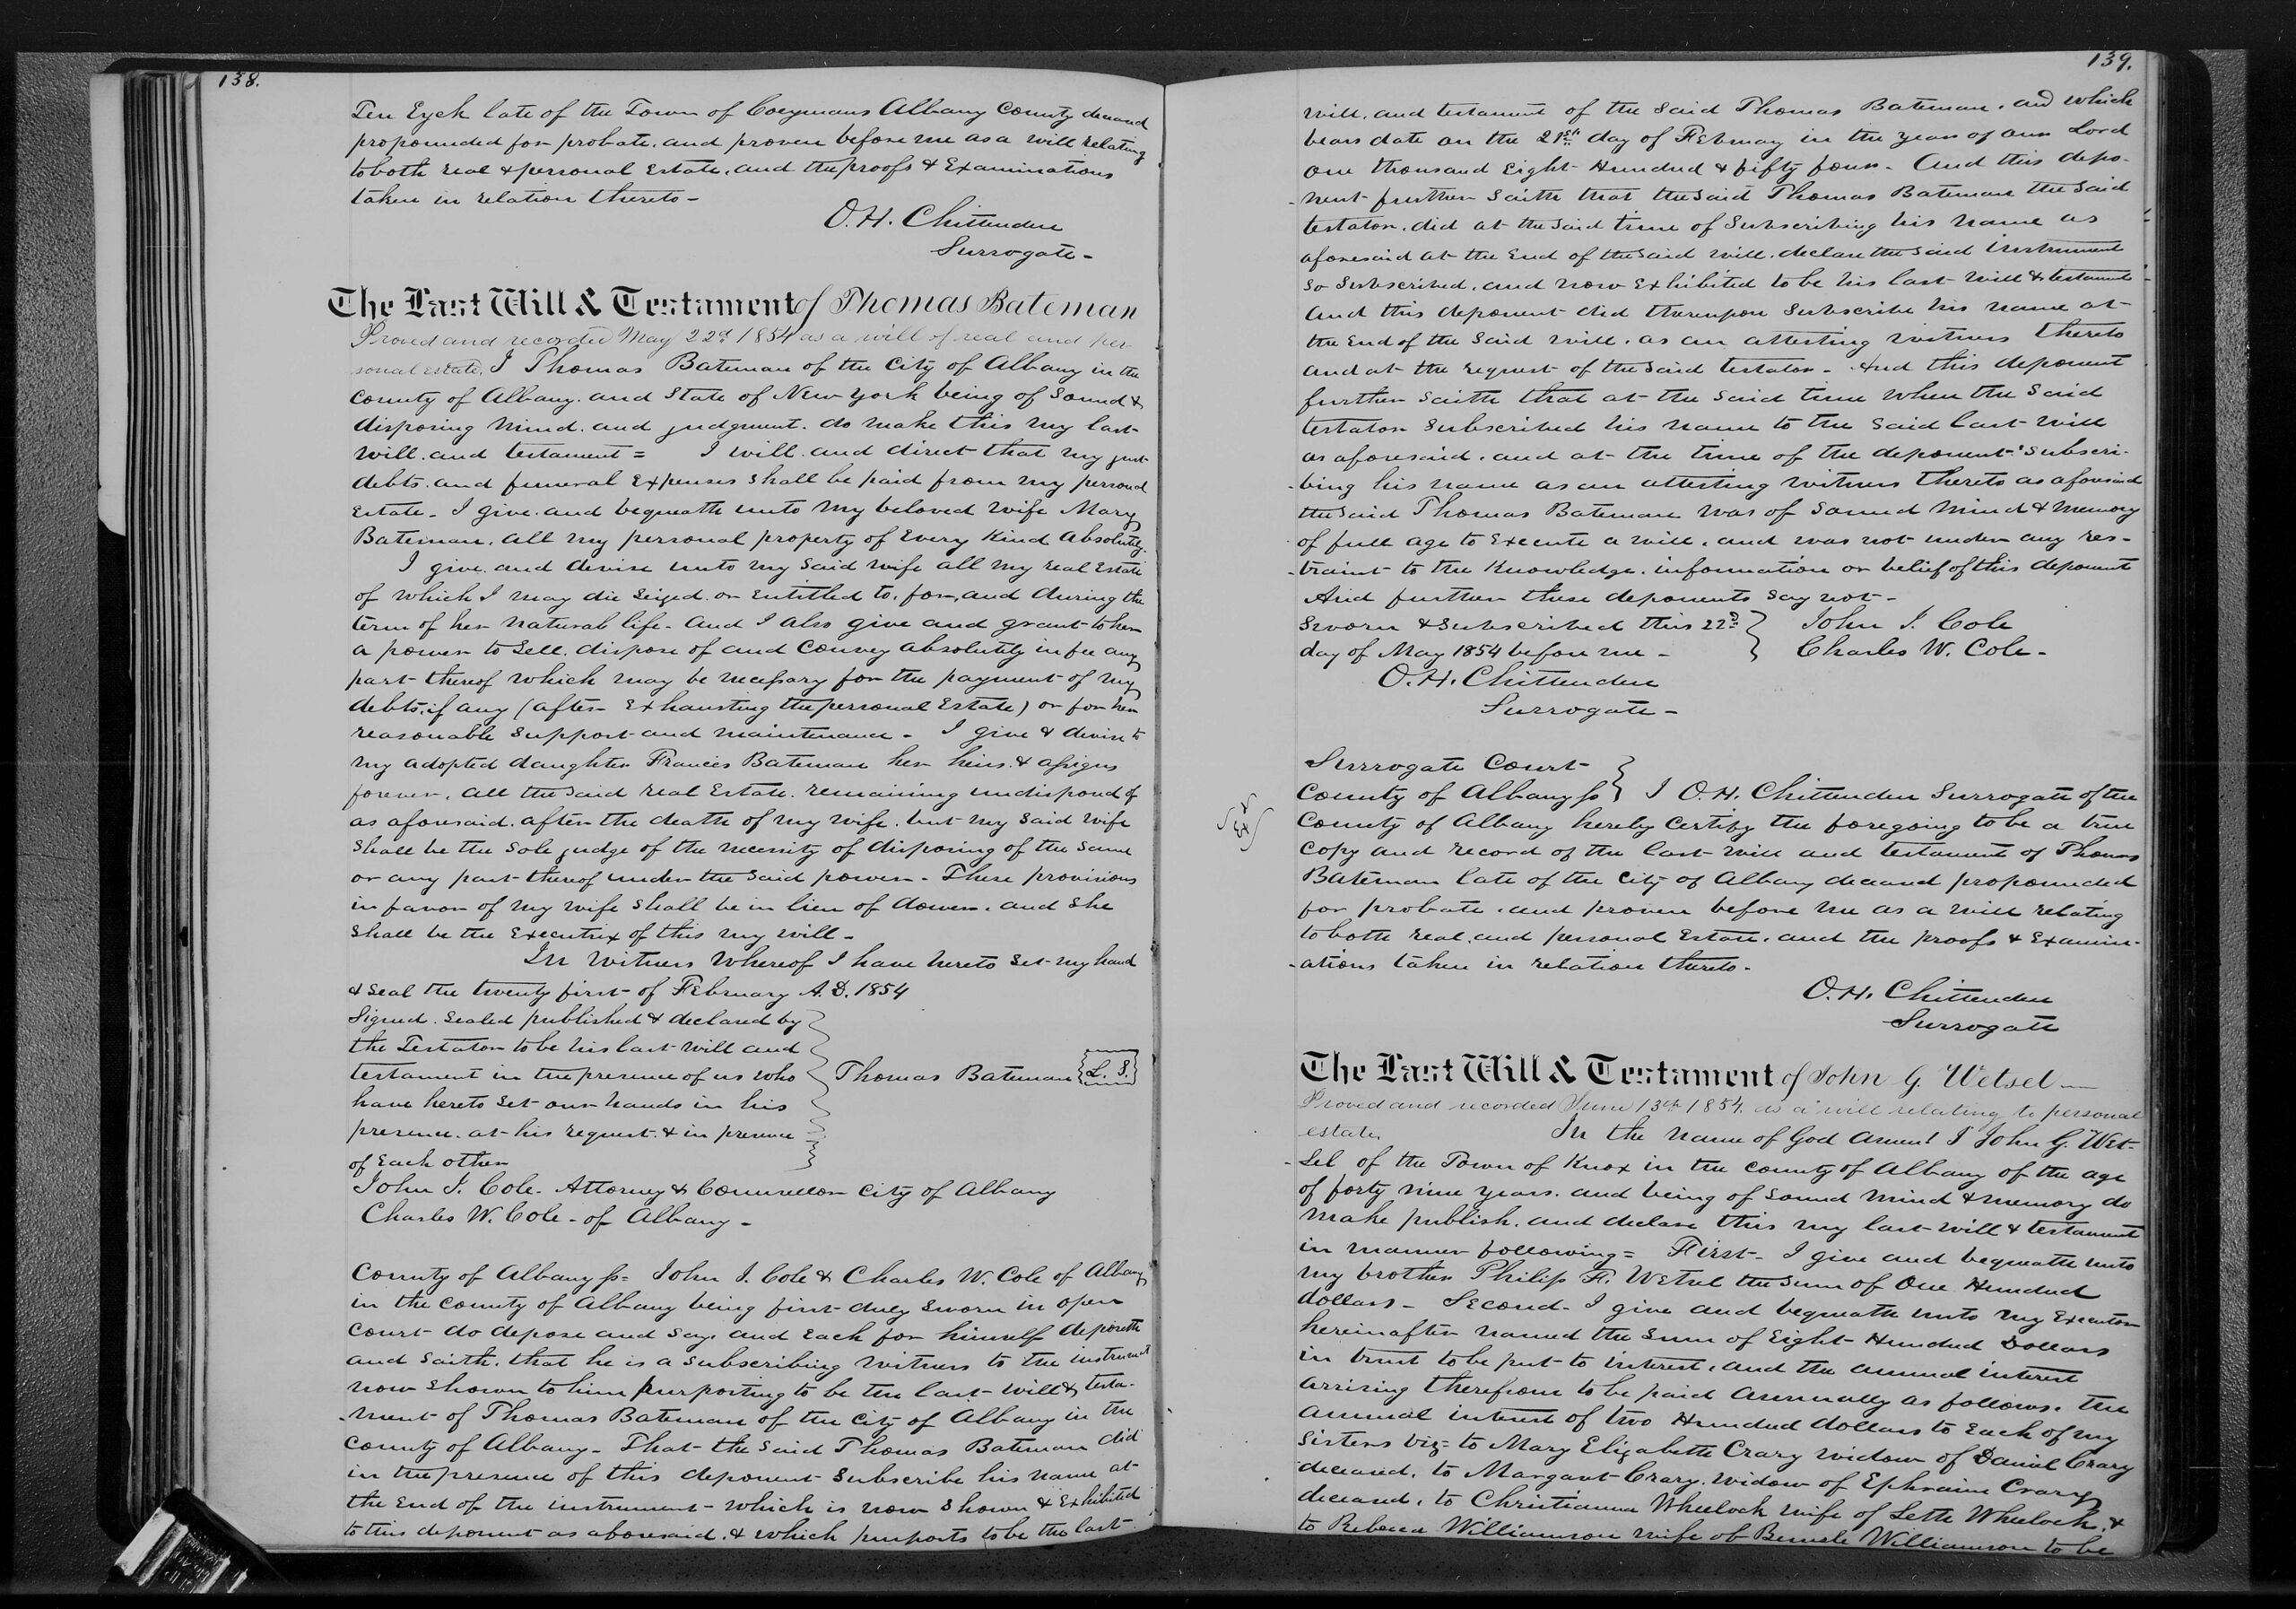 138.
Ten Eyck late of the Town of Coeymans Albany County deceased
propounded for probate, and proven before me as a will relating
to both real & personal Estate, and the proofs & Examinations
taken in relation thereto -
O. H. Chittenden
Surrogate -
The Last Will & Testament of Thomas Bateman
Proved and recorded May 22d 1854 as a will of real and per
sonal estate. I Thomas Bateman of the City of Albany in the
County of Albany and State of New York being of Sound &
disposing mind and judgment. do make this my last
will and testament = I will and direct that my just
debts and funeral Expenses shall be paid from my personal
Estate - I give and bequeath unto my beloved wife Mary
Bateman, all my personal property of Every Kind Absolutely.
I give and devise unto my said wife all my real Estate
of which I may die seized or Entitled to, for, and during the
term of her natural life - And I also give and grant to her
a power to Sell, dispose of and Convey absolutely in fee any
part thereof which may be necessary for the payment of my
debts, if any (after Exhausting the personal Estate) or for her
reasonable support and maintenance - I give & devise to
my adopted daughter Frances Bateman her heirs & assigns
forever, all the said real Estate remaining undisposed of
as aforesaid after the death of my wife, but my said wife
shall be the Sole judge of the necessity of disposing of the same
or any part thereof under the said power - These provisions
in favor of my wife shall be in lieu of dower, and she
shall be the Executrix of this my will -
In Witness Whereof I have hereto set my hand
& seal the twenty first of February A.D. 1854
Signed Sealed published & declared by
the Testator to be his last will and
testament in the presence of us who Thomas Bateman L. S.
have hereto set our hands in his
presence at his request & in presence
of Each other
John J. Cole - Attorney & Counsellor City of Albany
Charles W. Cole - of Albany -
County of Albany ss = John J. Cole & Charles W. Cole of Albany
in the County of Albany being first duly Sworn in open
Court do depose and say, and Each for himself deposeth
and saith, that he is a subscribing witness to the instrument
now shown to him purporting to be the last will & testa-
-ment of Thomas Bateman of the City of Albany in the
County of Albany - That the said Thomas Bateman did
in the presence of this deponent subscribe his name at
the End of the instrument - which is now shown & Exhibited
to this deponent as aforesaid. & which purports to be the last
139.
will and testament of the said Thomas Bateman, and which
bears date on the 21st day of February in the year of our Lord
one thousand Eight Hundred & fifty four - And this depo-
-nent further saith that the said Thomas Bateman the said
testator, did at the said time of Subscribing his name as
aforesaid at the End of the said will, declare the said instrument
so Subscribed, and now Exhibited to be his last will & testament
And this deponent did thereupon subscribe his name at
the End of the said will, as an attesting witness thereto
and at the request of the said testator - And this deponent
further saith that at the said time when the said
testator subscribed his name to the said last will
as aforesaid, and at the time of the deponent's subscri-
-bing his name as an attesting witness thereto as aforesaid
the said Thomas Bateman was of Sound Mind & Memory
of full age to Execute a will, and was not under any res-
-traint to the Knowledge, information or belief of this deponent
And further these deponents say not -
Sworn & Subscribed this 22d John J. Cole
day of May 1854 before me - Charles W. Cole -
O. H. Chittenden
Surrogate -
Surrogate Court
County of Albany ss I O. H. Chittenden Surrogate of the
County of Albany hereby Certify the foregoing to be a true
copy and record of the last will and testament of Thomas
Bateman late of the City of Albany deceased propounded
for probate, and proven before me as a will relating
to both real and personal Estate, and the proofs & Examin-
-ations taken in relation thereto -
O. H. Chittenden
Surrogate
The Last Will & Testament of John G. Wetsel
Proved and recorded June 13th 1854. as a will relating to personal
estate. In the name of God Amen! I John G. Wet-
-sel of the Town of Knox in the County of Albany of the age
of forty nine years, and being of sound mind & memory do
make publish, and declare this my last will & testament
in manner following = First - I give and bequeath unto
my brother Philip H. Wetsel the sum of One Hundred
dollars - Second - I give and bequeath unto my Executor
hereinafter named the sum of Eight Hundred Dollars
in trust to be put to interest, and the annual interest
arrising therefrom to be paid annually as follows, the
annual interest of two Hundred dollars to Each of my
Sisters viz - to Mary Elizabeth Crary widow of Daniel Crary
deceased, to Margaret Crary, widow of Ephraim Crary
deceased, to Christianna Wheelock wife of Seth Wheelock, &
to Rebecca Williamson wife of Williamson to be